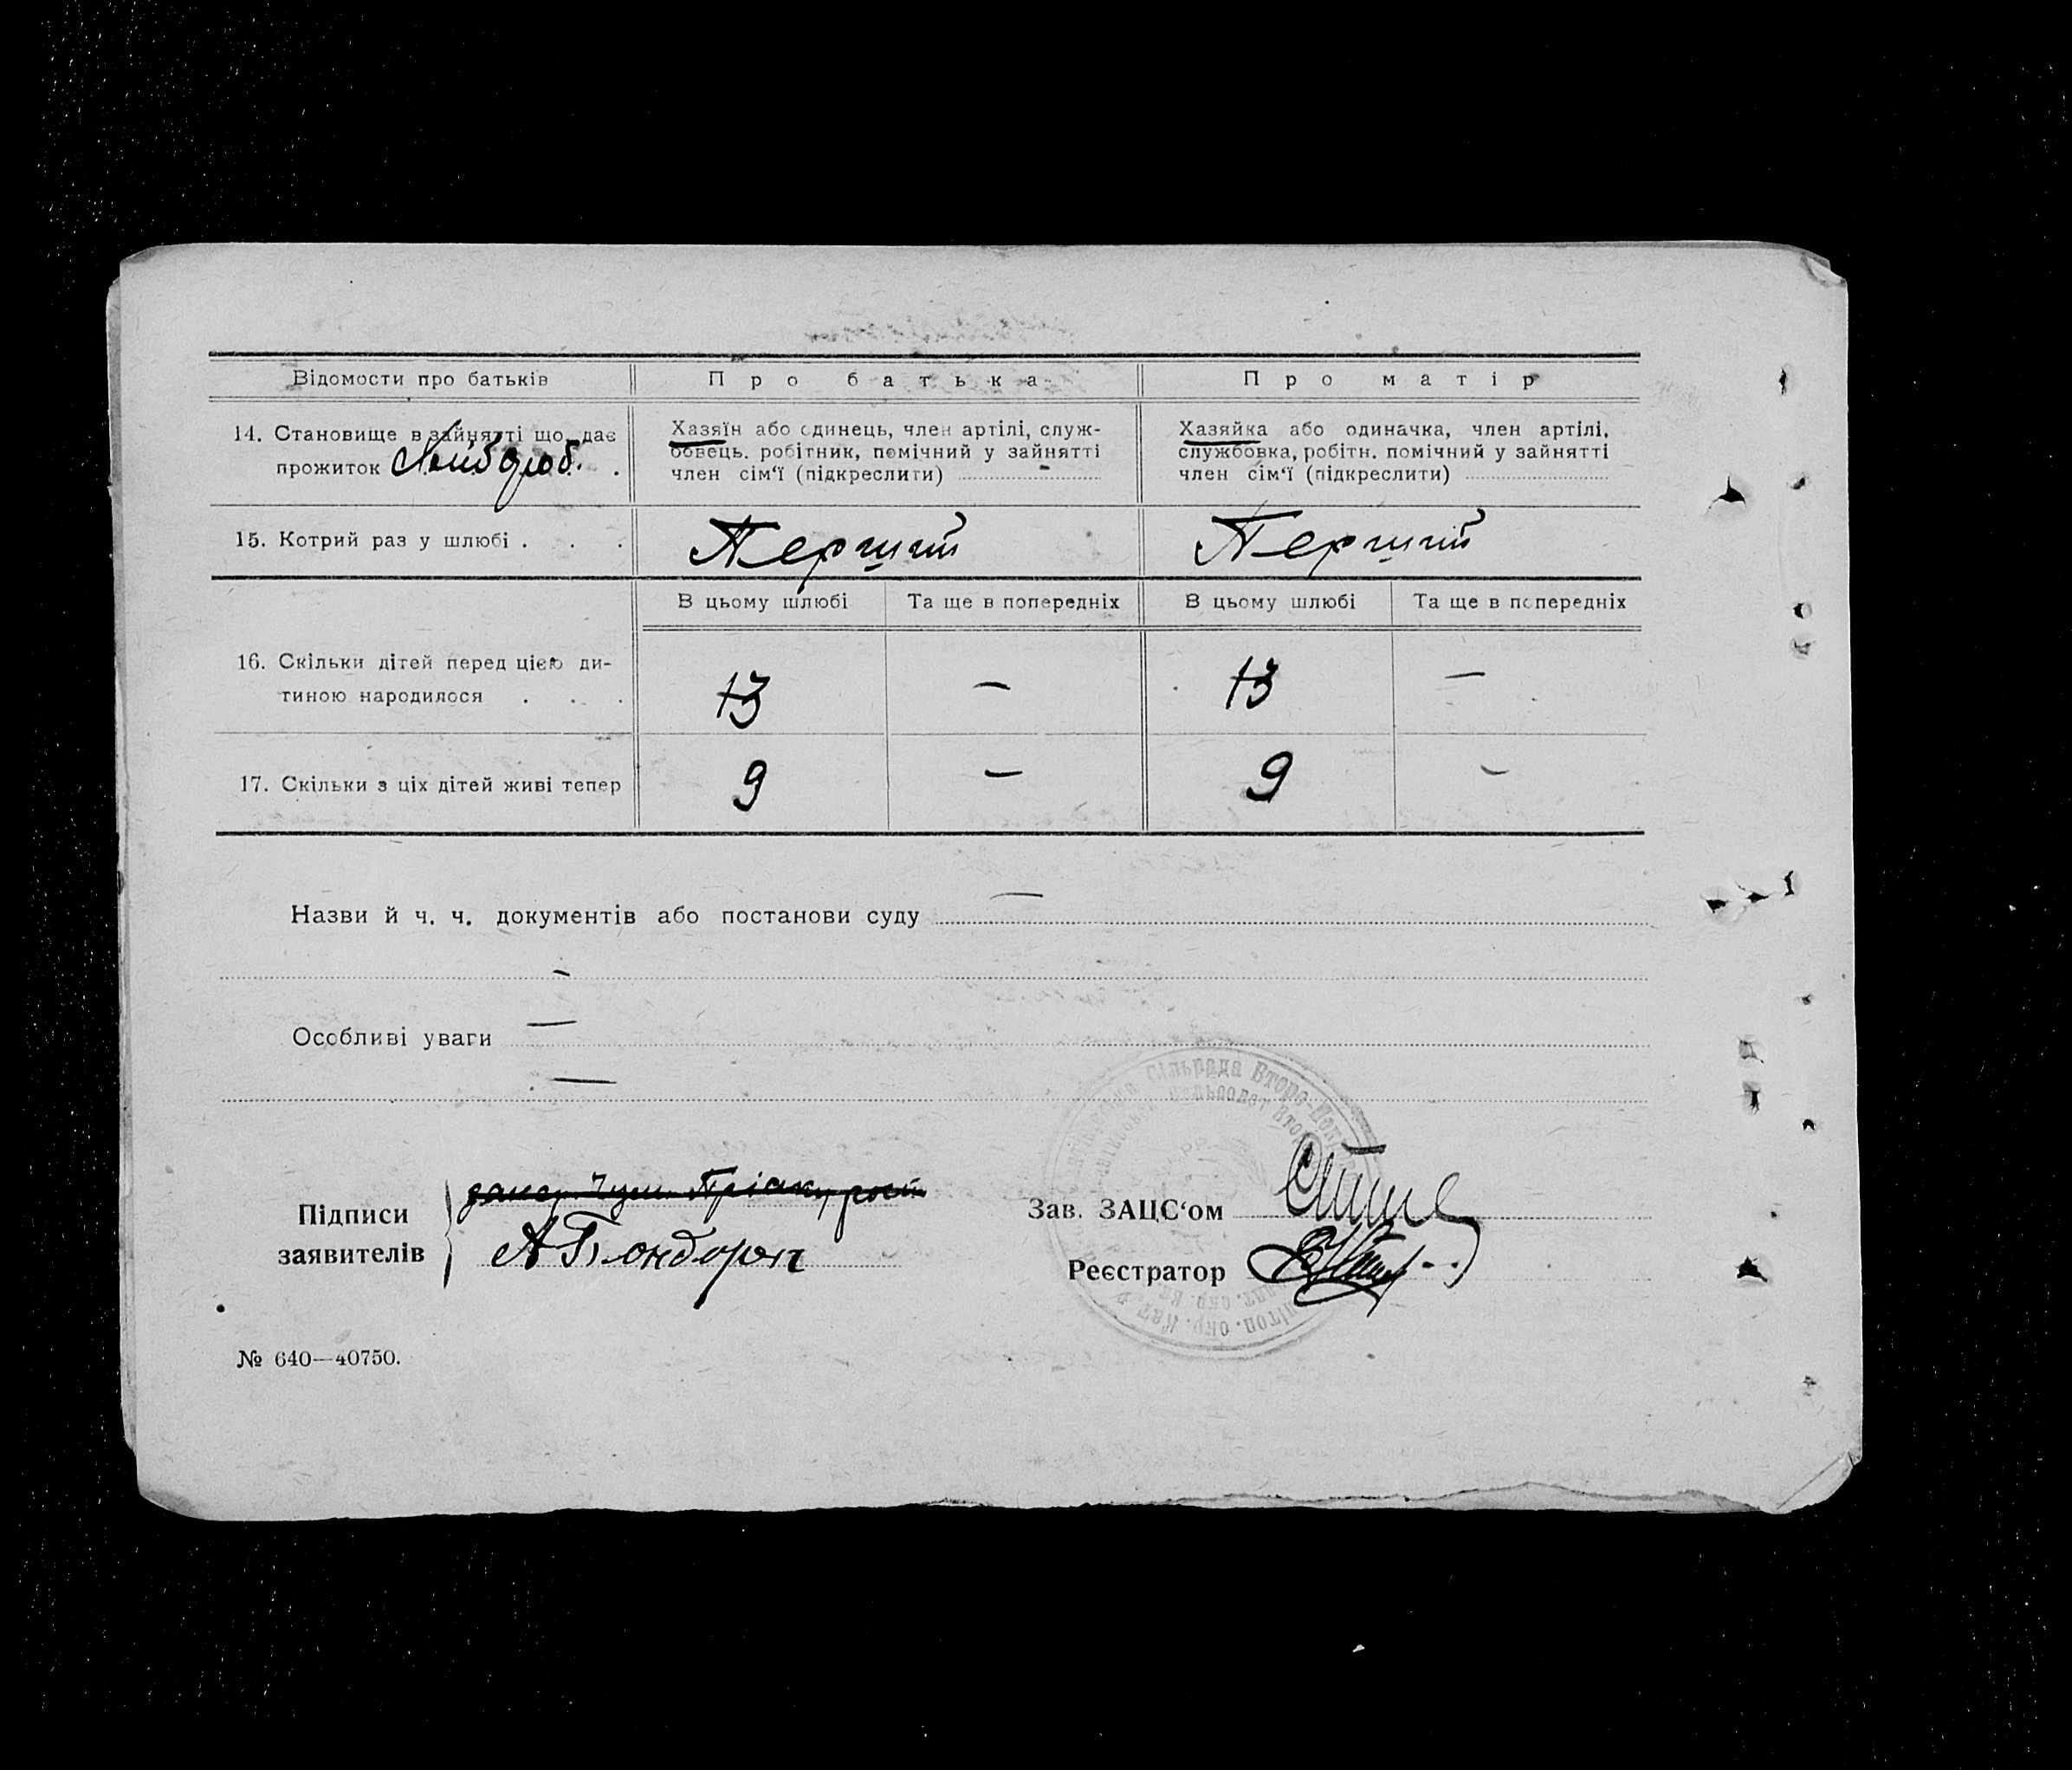 Відомости про батьків
Про батька
Про матір
14. Становище в зайнятті що дає
прожиток
Хазяїн або одинець, член артілі, служ-
бовець. робітник, помічний у зайнятті
член сім‘ї (підкреслити)
Хазяйка або одиначка, член артілі,
службовка, робітн. помічний у зайнятті
член сім‘ї (підкреслити)
15. Котрий раз у шлюбі . . .
Перший
Перший
В цьому шлюбі
Та ще в попередніх
В цьому шлюбі
Та ще в попередніх
16. Скільки дітей перед цією ди-
тиною народилося . . .
13
—
13
—
17. Скільки з ціх дітей живі тепер
9
—
9
—
Назви й ч. ч. документів або постанови суду —
—
Особливі уваги —
—
Сільрада Второ-
Підписи
заявителів
Зав. ЗАЦС‘ом
Реєстратор
№ 640—40750.